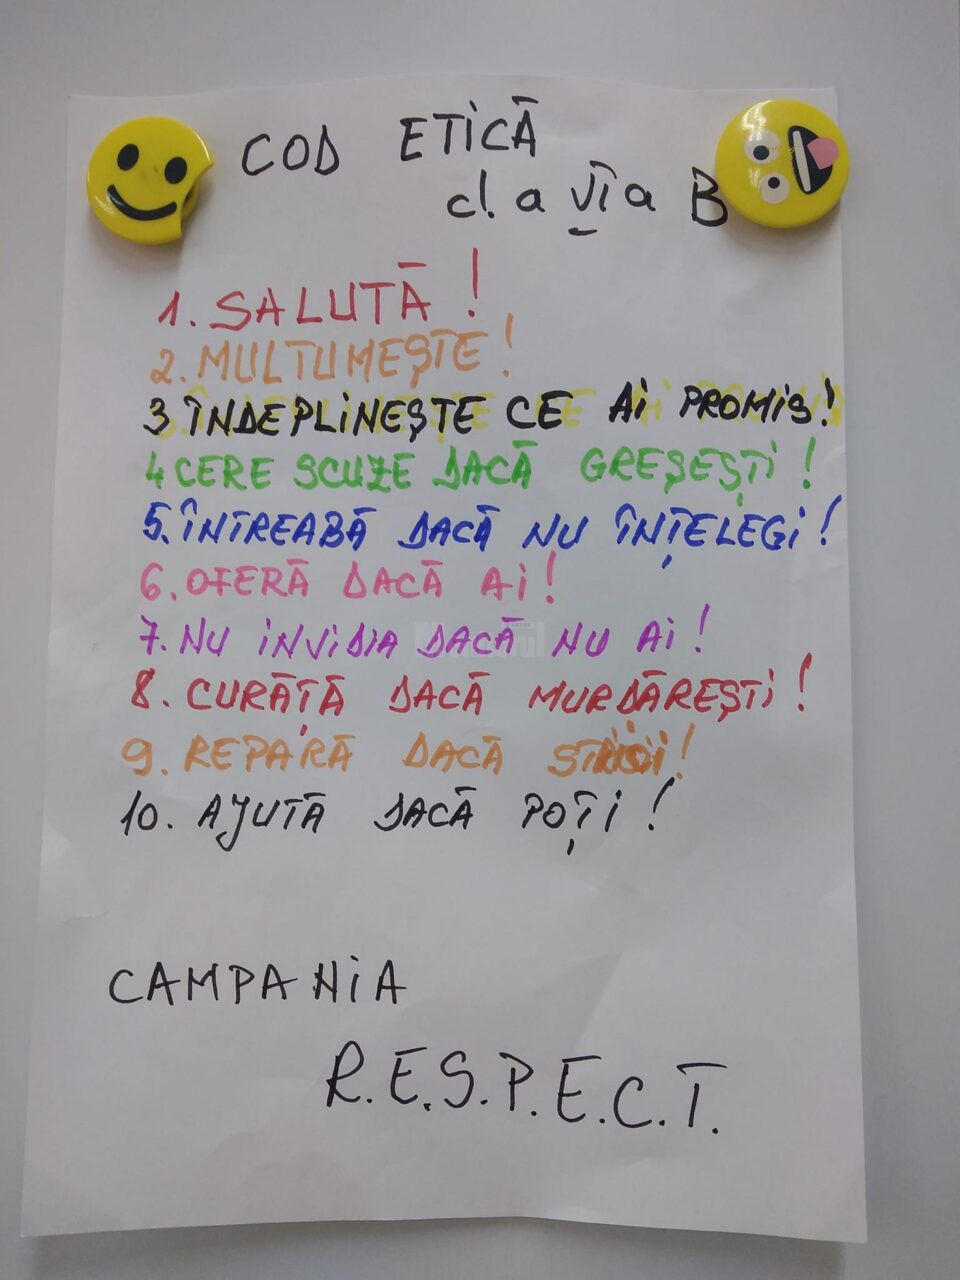 COD ETICĂ
cl. a VI a B
1. SALUTĂ !
2. MULTUMEȘTE !
3 ÎNDEPLINEȘTE CE AI PROMIS!
4 CERE SCUZE DACĂ GREȘEȘTI !
5. ÎNTREABĂ DACĂ NU ÎNȚELEGI !
6. OFERĂ DACĂ AI !
7. NU INVIDIA DACĂ NU AI !
8. CURĂȚĂ DACĂ MURDĂREȘTI !
9. REPARĂ DACĂ STRICI !
10. AJUTĂ DACĂ POȚI !
CAMPANIA
R.E.S.P.E.C.T.